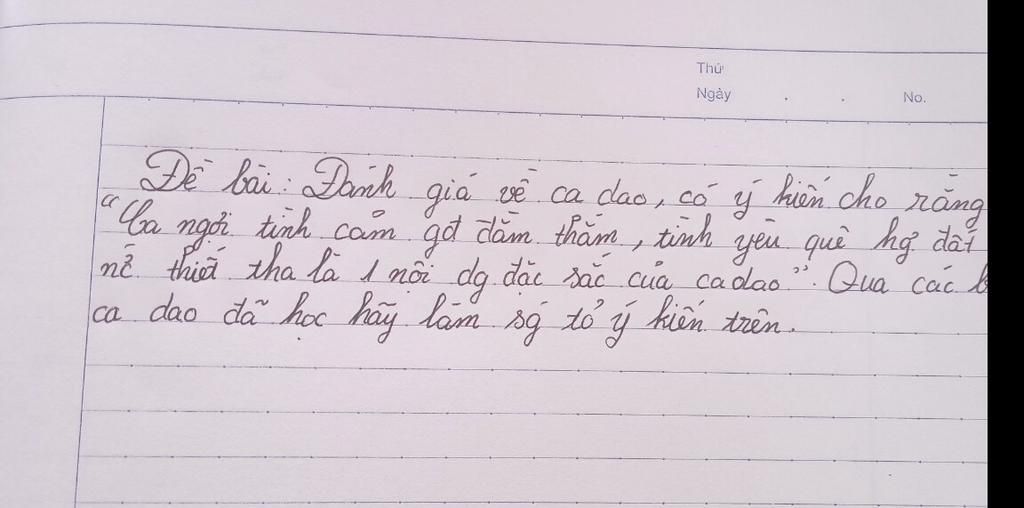 Thứ
Ngày . . No.
Đề bài: Đánh giá về ca dao, có ý kiến cho rằng
"Ca ngợi tình cảm gđ đằm thắm, tình yêu quê hg đất
nc thiết tha là 1 nội dg đặc sắc của ca dao". Qua các b
ca dao đã học hãy làm sg tỏ ý kiến trên.